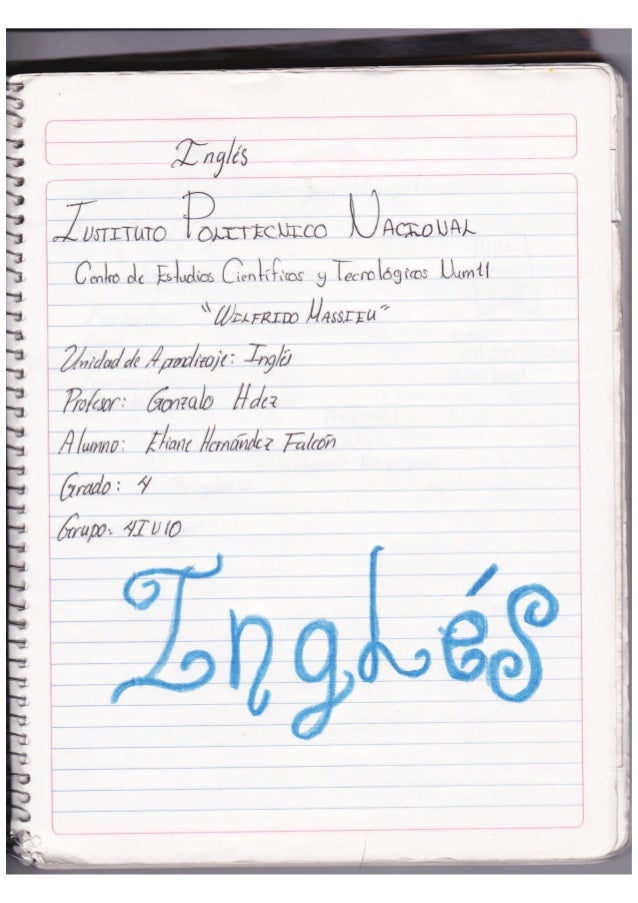 Inglés
INSTITUTO POLITECNICO NACIONAL
Centro de Estudios Científicos y Tecnológicos Num 11
"WILFRIDO MASSIEU"
Unidad de Aprendizaje: Inglés
Profesor: Gonzalo Hdez
Alumno: Eliane Hernández Falcón
Grado: 4
Grupo: 4IV10
Inglés